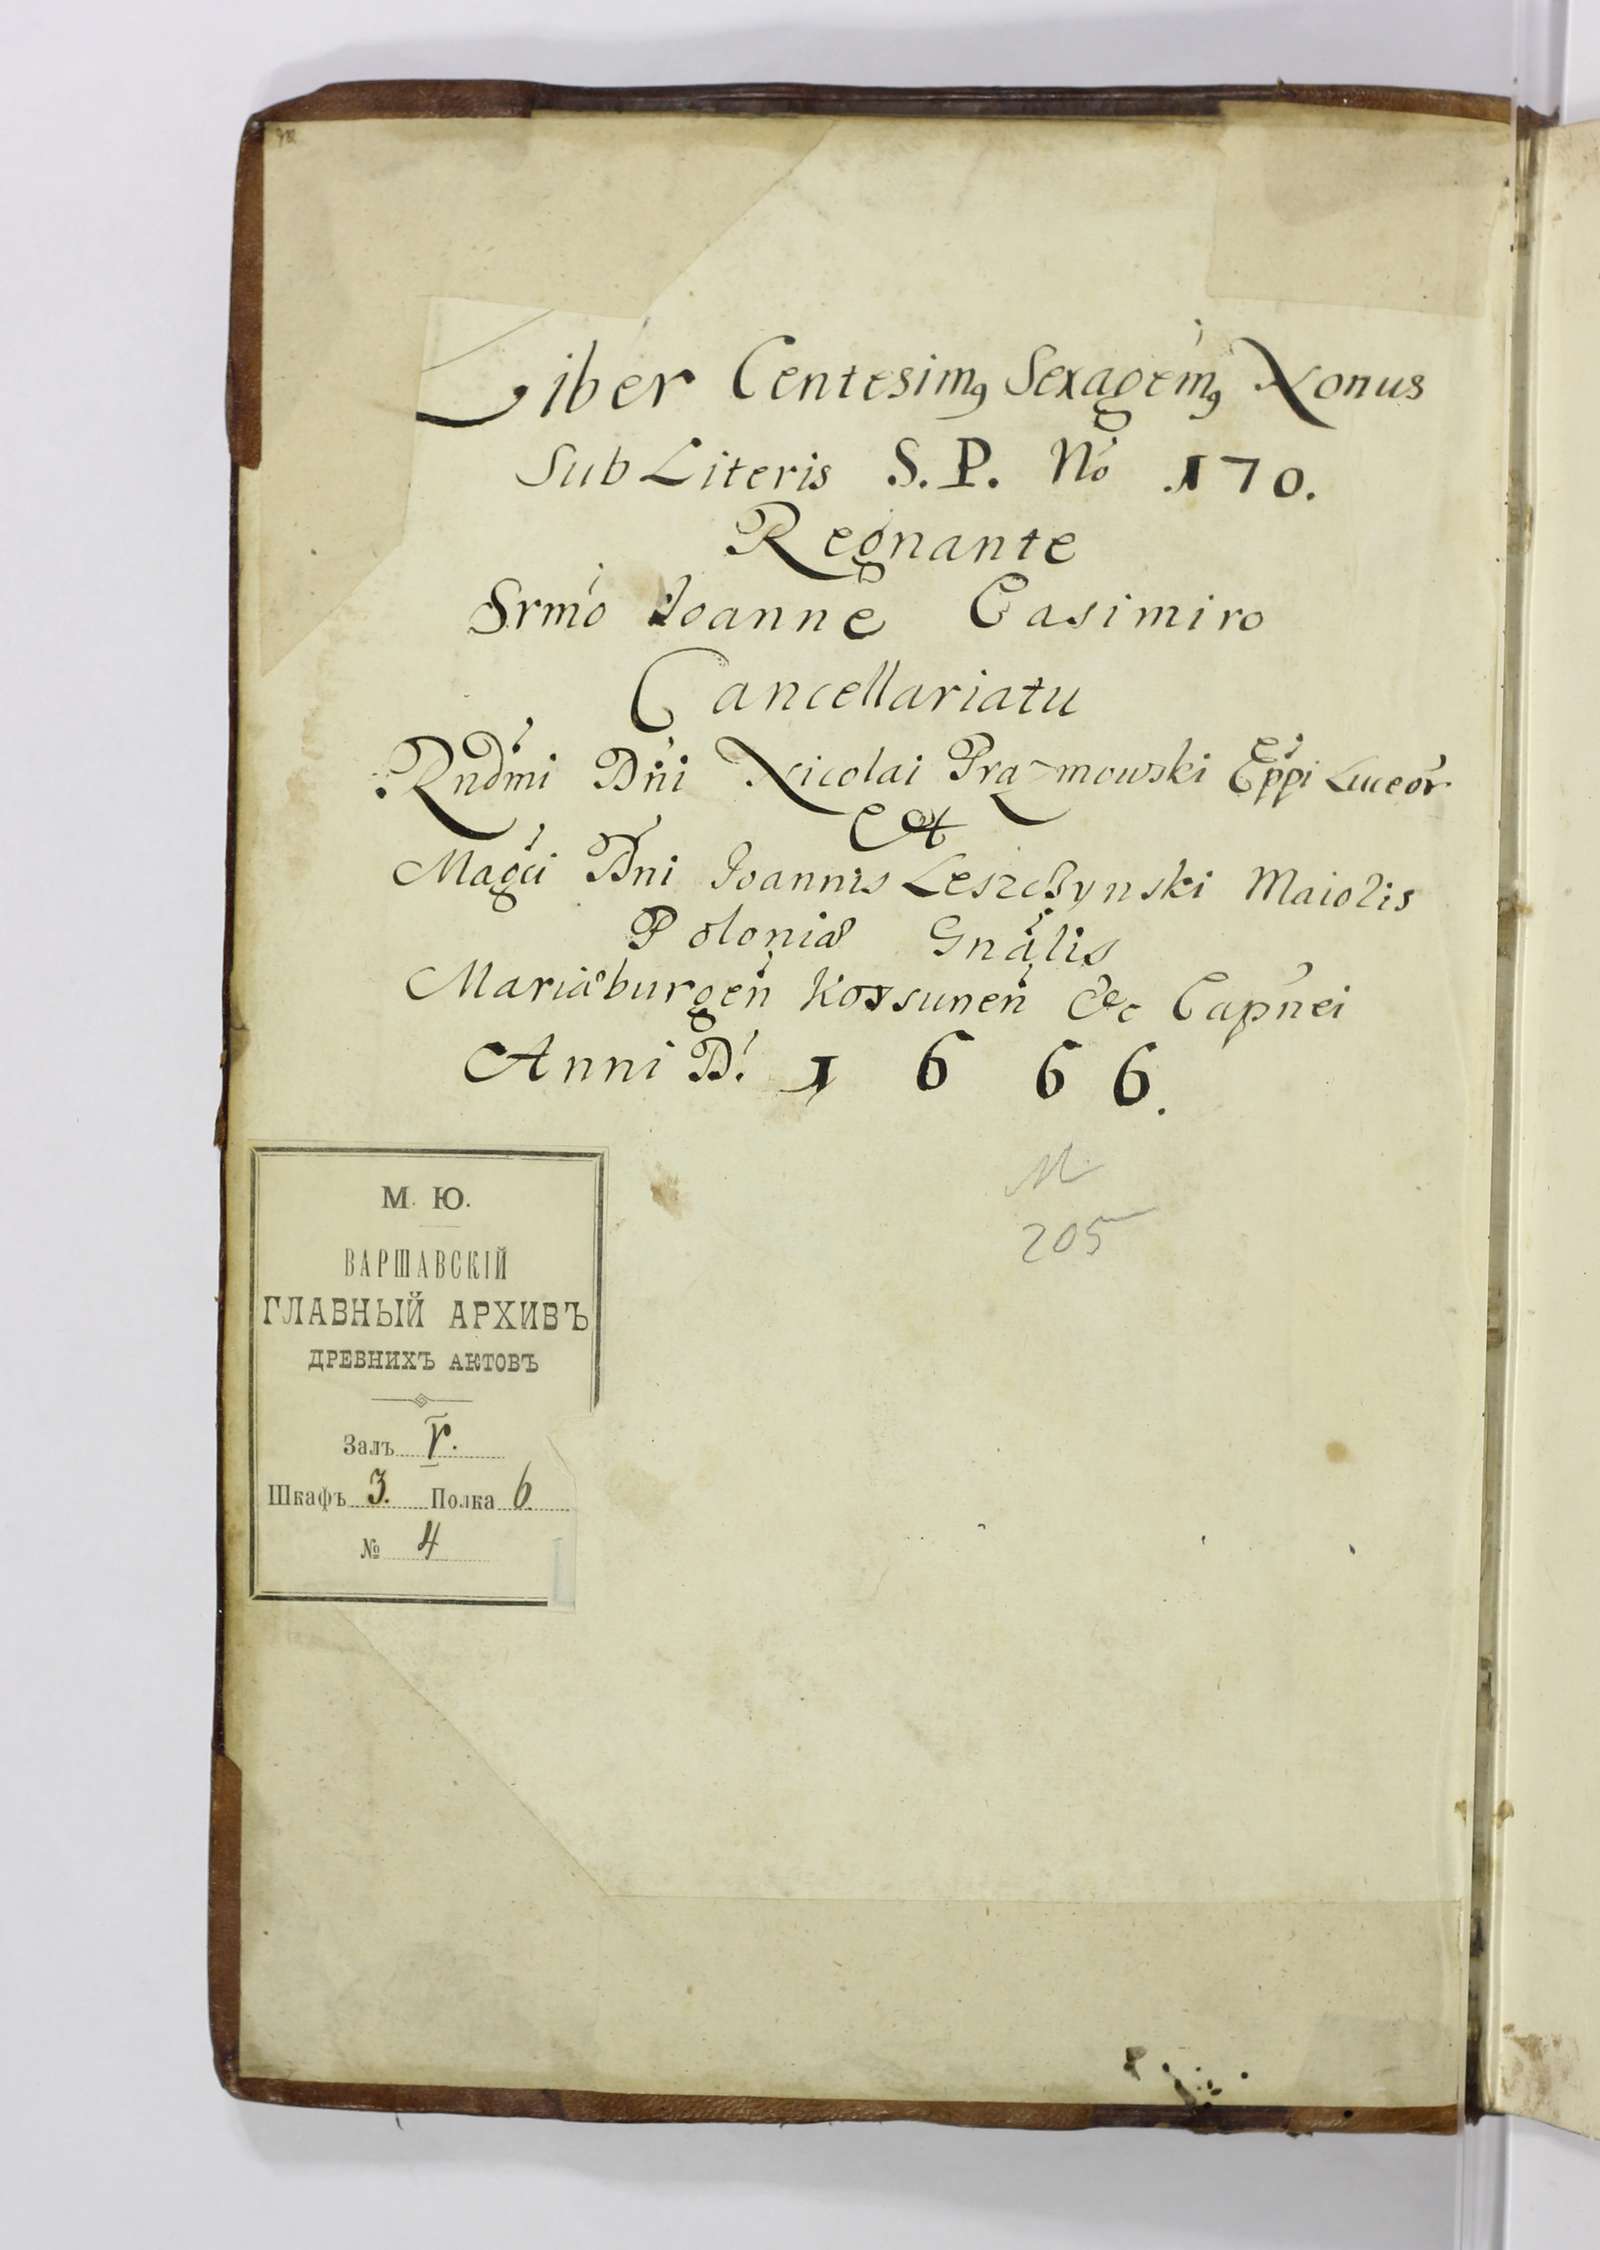 Liber Centesimꝰ Sexagemꝰ Nonus
Sub Literis S. P. No 170.
Regnante
Srmo Joanne Casimiro
Cancellariatu
Rndmi Dni Nicolai Prazmowski Eppi Luceor
Et
Magci Dni Joannis Leszczynski Maioris
Poloniæ Gnalis
Mariæburgen Korsunen &c Capnei
Anni D. 1666.
М. Ю.
ВАРШАВСКІЙ
ГЛАВНЫЙ АРХИВЪ
ДРЕВНИХЪ АКТОВЪ
Залъ V.
Шкафъ 3. Полка 6
№ 4
M
205